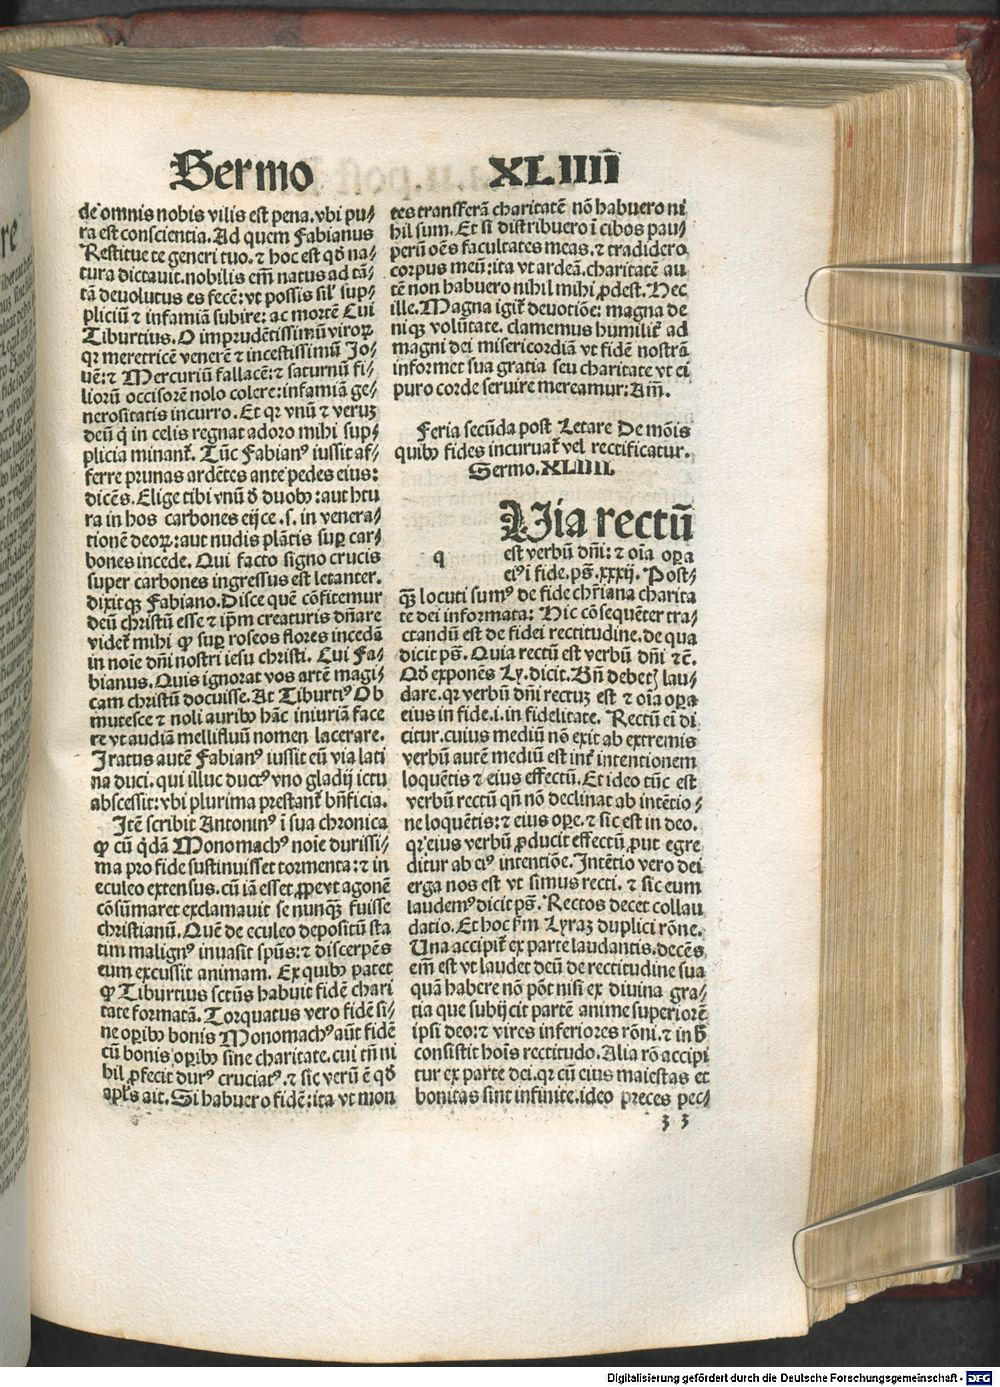 Sermo XLIIII
de omnis nobis vilis est pena. vbi pu⸗
ra est conscientia. Ad quem Fabianus
Restitue te generi tuo. ⁊ hoc est qđ na⸗
tura dictauit. nobilis em̄ natus ad tā⸗
tā deuolutus es fecē: vt possis sil' sup⸗
pliciū ⁊ infamiā subire: ac mortē Cui
Tiburtius. O imprudētissimū viroꝝ
qꝛ meretricē venerē ⁊ incestissimū Jo⸗
uē: ⁊ Mercuriū fallacē: ⁊ saturnū fi⸗
liorū occisorē nolo colere: infamiā ge⸗
nerositatis incurro. Et qꝛ vnū ⁊ veruꝫ
deū q̇ in celis regnat adoro mihi sup⸗
plicia minant᷑. Tūc Fabianꝰ iussit af⸗
ferre prunas ardētes ante pedes eius:
dicēs. Elige tibi vnū đ duobꝰ: aut htu
ra in hos carbones eijce .s. in venera⸗
tionē deoꝝ: aut nudis plātis suꝑ car⸗
bones incede. Qui facto signo crucis
super carbones ingressus est letanter.
dixitqꝫ Fabiano. Disce quē cōfitemur
deū christū esse ⁊ ip̄m creaturis dn̄are
videt᷑ mihi ꝙ suꝑ roseos flores incedā
in noīe dn̄i nostri iesu christi. Cui Fa⸗
bianus. Quis ignorat vos artē magi⸗
cam christū docuisse. At Tiburtiꝰ Ob
mutesce ⁊ noli auribꝰ hāc iniuriā face
re vt audiā mellifluū nomen lacerare.
Iratus autē Fabianꝰ iussit eū via lati
na duci. qui illuc ductꝰ vno gladij ictu
abscessit: vbi plurima prestant᷑ bn̄ficia.
Itē scribit Antoninꝰ ī sua chronica
ꝙ cū q̇dā Monomachꝰ noīe durissi⸗
ma pro fide sustinuisset tormenta: ⁊ in
eculeo extensus. cū iā esset ꝓpe vt agonē
cōsūmaret exclamauit se nunqꝫ fuisse
christianū. Quē de eculeo depositū sta
tim malignꝰ inuasit spūs: ⁊ discerpēs
eum excussit animam. Ex quibꝰ patet
ꝙ Tiburtius sctūs habuit fidē chari
tate formatā. Torquatus vero fidē si⸗
ne oꝑibꝰ bonis Monomachꝰ aūt fidē
cū bonis oꝑibꝰ sine charitate. cui tn̄ ni
hil ꝓfecit durꝰ cruciatꝰ. ⁊ sic verū ē qđ
apl's ait. Si habuero fidē: ita vt mon
tes transferā charitatē nō habuero ni
hil sum. Et si distribuero ī cibos pau⸗
perū oēs facultates meas. ⁊ tradidero
corpus meū: ita vt ardeā. charitatē au
tē non habuero nihil mihi ꝓdest. Hec
ille. Magna igit᷑ deuotiōe: magna de
niqꝫ volūtate. clamemus humilit᷑ ad
magni dei misericordiā vt fidē nostrā
informet sua gratia seu charitate vt ei
puro corde seruire mereamur: Am̄.
Feria secūda post Letare De mōis
quibꝰ fides incuruat᷑ vel rectificatur.
Sermo. XLIIII.
Uia rectū
q est verbū dn̄i: ⁊ oīa oꝑa
eiꝰ ī fide. pṡ. xxxij. Post⸗
qꝫ locuti sumꝰ de fide chr̄iana charita
te dei informata: Hic cōsequēter tra⸗
ctandū est de fidei rectitudine. de qua
dicit pṡ. Quia rectū est verbū dn̄i ⁊c̄.
Qđ exponēs Ly. dicit. Bn̄ debetꝭ lau⸗
dare. qꝛ verbū dn̄i rectuꝫ est ⁊ oīa oꝑa
eius in fide .i. in fidelitate. Rectū ei di
citur. cuius mediū nō exit ab extremis
verbū autē mediū est int᷑ intentionem
loquētis ⁊ eius effectū. Et ideo tūc est
verbū rectū qn̄ nō declinat ab intētio⸗
ne loquētis: ⁊ eius oꝑe. ⁊ sic est in deo.
qꝛ eius verbū ꝓducit effectū ꝓut egre
ditur ab eiꝰ intentiōe. Intētio vero dei
erga nos est vt simus recti. ⁊ sic eum
laudemꝰ dicit pṡ. Rectos decet collau
datio. Et hoc fm Lyraꝫ duplici rōne.
Una accipit᷑ ex parte laudantis. decēs
em̄ est vt laudet deū de rectitudine sua
quā habere nō pōt nisi ex diuina gra⸗
tia que subijcit partē anime superiorē
ipsi deo: ⁊ vires inferiores rōni. ⁊ in ħ
consistit hoīs rectitudo. Alia rō accipi
tur ex parte dei. qꝛ cū eius maiestas et
bonitas sint infinite. ideo preces pec⸗
3 3
Digitalisierung gefördert durch die Deutsche Forschungsgemeinschaft - DFG